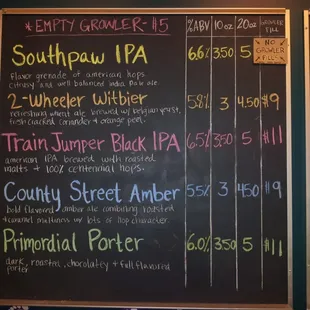 * EMPTY GROWLER - $5
%ABV 10oz 20oz GROWLER FILL
Southpaw IPA 6.6% 3.50 5 NO GROWLER FILL
flavor grenade of american hops.
citrusy and well balanced india pale ale
2-Wheeler Witbier 5.8% 3 4.50 $9
refreshing wheat ale brewed w/ belgian yeast,
fresh cracked coriander & orange peel.
Train Jumper Black IPA 6.5% 3.50 5 $11
american IPA brewed with roasted
malts + 100% centennial hops.
County Street Amber 5.5% 3 4.50 $9
bold flavored amber ale combining roasted
+ caramel maltiness w/ lots of hop character.
Primordial Porter 6.0% 3.50 5 $11
dark, roasted, chocolatey + full flavored
porter